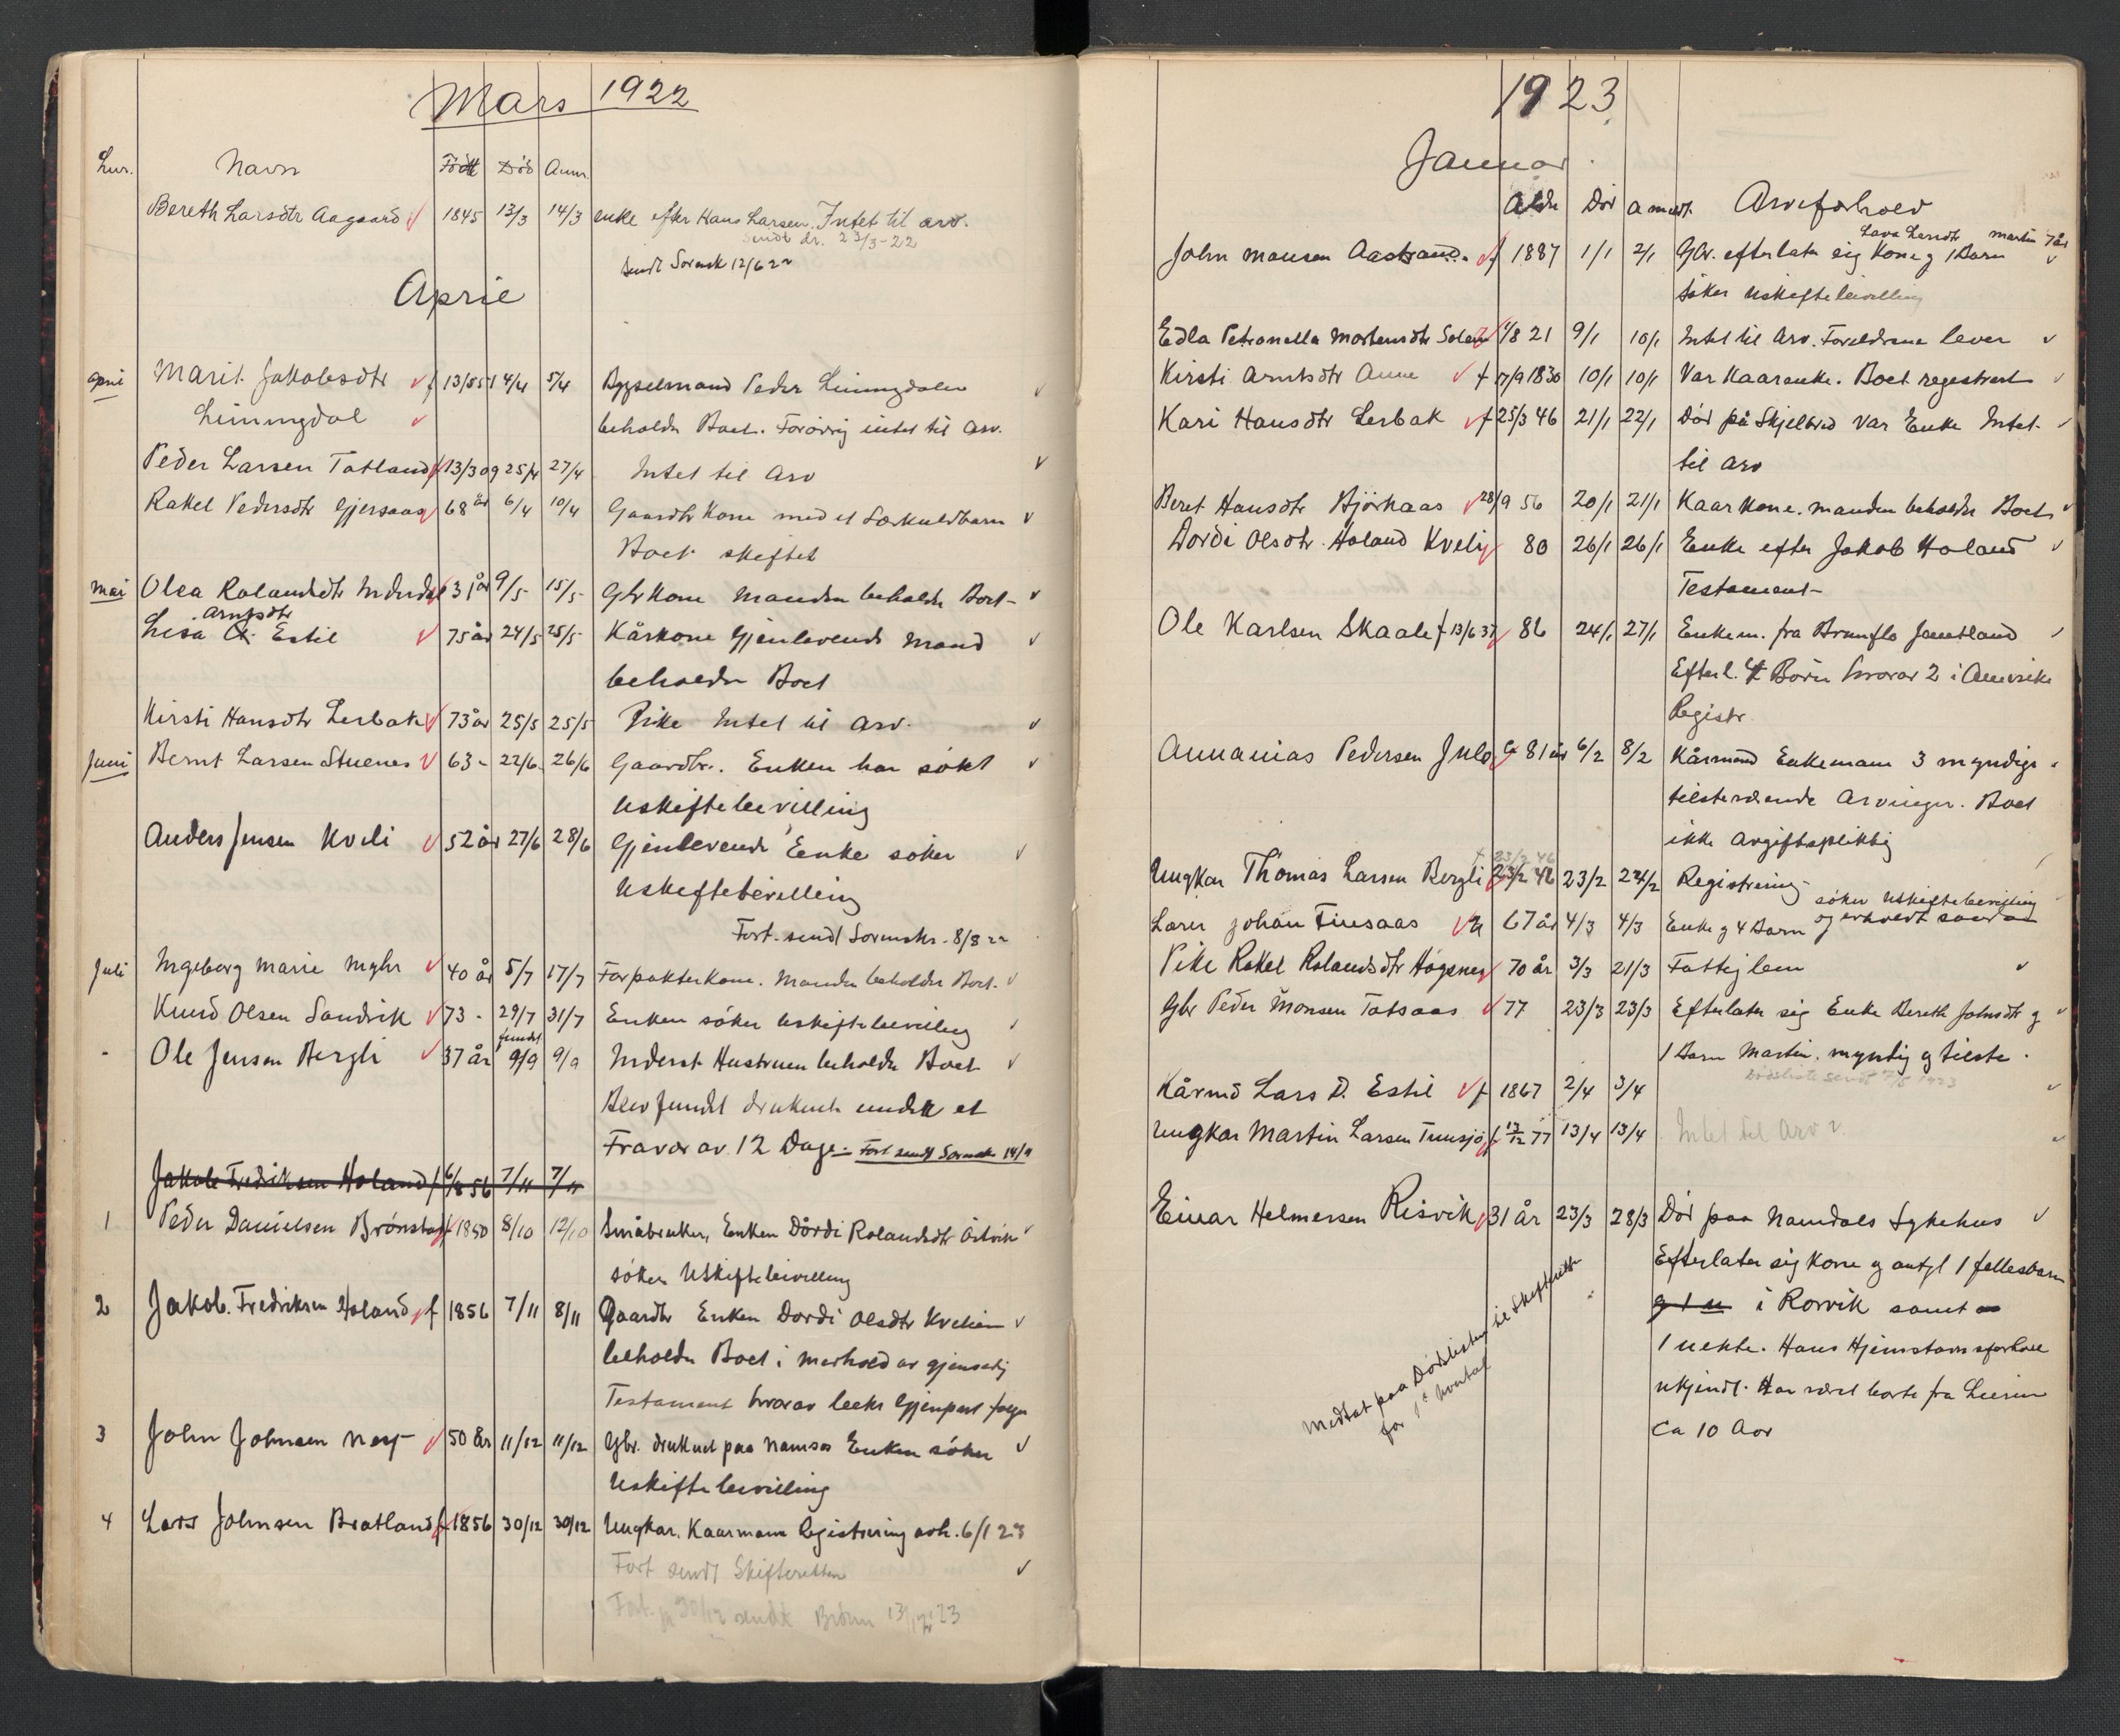 Mars 1922
Lnr. Navn Født Død Anm.
Bereth Larsdtr Aagaard 1845 13/3 14/3 enke efter Hans Larsen. Intet til arv.
Sendt dr. 23/3-22
Sendt Sorensk 12/6 22
April
april Marit Jakobsdtr f 13/5 51 4/4 5/4 Bygselmand Peder Limingdalen
Limingdal beholder Boet. Forøvrig intet til Arv.
Peder Larsen Totland f 13/3 09 25/4 27/4 Intet til Arv
Rakel Pedersdtr Gjersaas 68 år 6/4 10/4 Gaardbr Kone med et Særkuldbarn
Boet skiftet
Mai Olea Rolandsdtr 31 år 9/5- 15/5- Gbr Kone Manden beholder Boet-
Arntsdtr
Lisa Estil 75 år 24/5 25/5- Kårkone Gjenlevende Mand
beholder Boet
Kirsti Hansdtr Lerbak 73 år 25/5 25/5 Pike Intet til Arv.
Juni Bernt Larsen Stuenes 63 - 22/6 26/6 Gaardbr. Enken har søkt
Uskiftebevilling
Anders Jensen Kveli 52 år 27/6 28/6 Gjenlevende Enke søker
Uskiftebevilling
Fort. sendt Sorenskr. 8/8 22
Juli Ingeborg Marie Myhr 40 år 5/7 17/7 Forpakterkone. Manden beholder Boet.
Knud Olsen Sandvik 73 - 29/7 31/7 Enken søker Uskiftebevilling
fundet
- Ole Jensen Bergli 37 år 9/9 9/9 Inderst Hustruen beholder Boet
Blev fundet druknet under et
Fravær av 12 Dage - Fort sendt Sorensk 14/9
Jakob Fredriksen Holand f 6/8 56 7/11 7/11
1 Peder Danielsen Brønstad f 1850 8/10 12/10 Småbruker, Enken Dordi Rolandsdtr
søker Uskiftebevilling
2 Jakob. Fredriksen Holand f 1856 7/11 8/11 Gaardbr Enken Dordi Olsdtr Kvelien
beholder Boet i Medhold av gjensidig
Testament hvorav bekr Gjenpart følger
3 John Johnsen Nes 50 år 11/12 11/12 Gbr. druknet paa Namsos Enken søker
Uskiftebevilling
4 Lars Johnsen Bratland f 1856 30/12 30/12 Ungkar. Kaarmann Registrering avh. 6/1 23
Fort sendt Skifteretten
Fort. pr 30/12 sendt 13/12 23
1923
Januar.
Alder Død Anmeldt. Arveforhold
Lava Larsdtr Martin 7 år
John Monsen Aastrand. f 1887 1/1 2/1 Gbr. efterlater sig Kone og 1 Barn
søker Uskiftebevilling
Edla Petronella Mortensdtr Solem 4/8 21 9/1 10/1 Intet til Arv. Foreldrene lever
Kirsti Arntsdtr Aune f 17/9 1830 10/1 10/1 Var Kaarenke. Boet registrert
Kari Hansdtr Lerbak f 25/3 46 21/1 22/1 Død på Skjelbred Var Enke Intet
til Arv
Beret Hansdtr Bjørkaas 28/9 56 20/1 21/1 Kaarkone. Manden beholder Boet
Dordi Olsdtr. Holand Kveli 80 26/1 26/1 Enke efter Jakob Holand
Testament-
Ole Karlsen Skaale f 13/6 37 86 24/1 27/1 Enkem. fra Brunflo Jæmtland
Efterl. Børn hvorav 2 i Amerika
Registr.
Annanias Pedersen Julo 81 år 6/2 8/2 Kårmand Enkemann 3 myndige
tilstedværende Arvinger. Boet
ikke Avgiftspliktig
f 23/2 46
Ungkar Thomas Larsen Bergli 23/2 46 23/2 24/2 Registrering
søker Uskiftebevilling
Lærer Johan Finsaas 67 år 4/3 4/3 Enke og 4 Barn og erholdt
Pike Rakel Rolandsdtr Høgsnes 70 år 3/3 21/3 Fattiglem
Gbr Peder Monsen Totsaas 77 23/3 23/3 Efterlater sig Enke Bereth Johnsdtr og
1 Barn Martin. myndig og tilste.
Dødsliste sendt 7/5 1923
Kårmd Lars D. Estil f 1867 2/4 3/4
Ungkar Martin Larsen Tunsjø f 13/12 77 13/4 13/4 Intet til Arv
Einar Helmersen Risvik 31 år 23/3 28/3 Død paa Namdals Sykehus
Efterlater sig Kone og antgl 1 fellesbarn
i Rørvik samt
1 uekte. Hans Hjemstavnsforhold
ukjendt. Har vært borte fra Lierne
Ca 10 Aar
Medtat paa Dødslisten til Skifteretten
for 1ste Kvartal